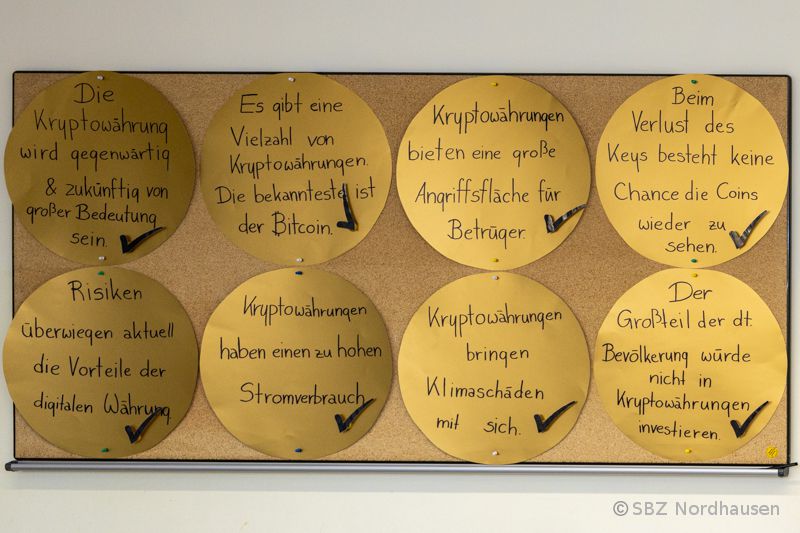 Die
Kryptowährung
wird gegenwärtig
& zukünftig von
großer Bedeutung
sein.
Es gibt eine
Vielzahl von
Kryptowährungen.
Die bekannteste ist
der Bitcoin.
Kryptowährungen
bieten eine große
Angriffsfläche für
Betrüger.
Beim
Verlust des
Keys besteht keine
Chance die Coins
wieder zu
sehen.
Risiken
überwiegen aktuell
die Vorteile der
digitalen Währung
Kryptowährungen
haben einen zu hohen
Stromverbrauch
Kryptowährungen
bringen
Klimaschäden
mit sich.
Der
Großteil der dt.
Bevölkerung würde
nicht in
Kryptowährungen
investieren.
©SBZ Nordhausen